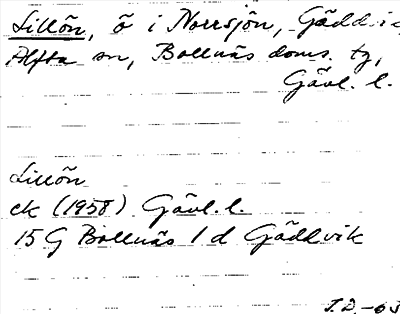 Lillön, ö i Norrsjön, Gäddvik,
Alfta sn, Bollnäs doms. tg,
Gävl. l.
Lillön
ek (1958) Gävl. l.
15 G Bollnäs 1 d Gäddvik
J.D.-63